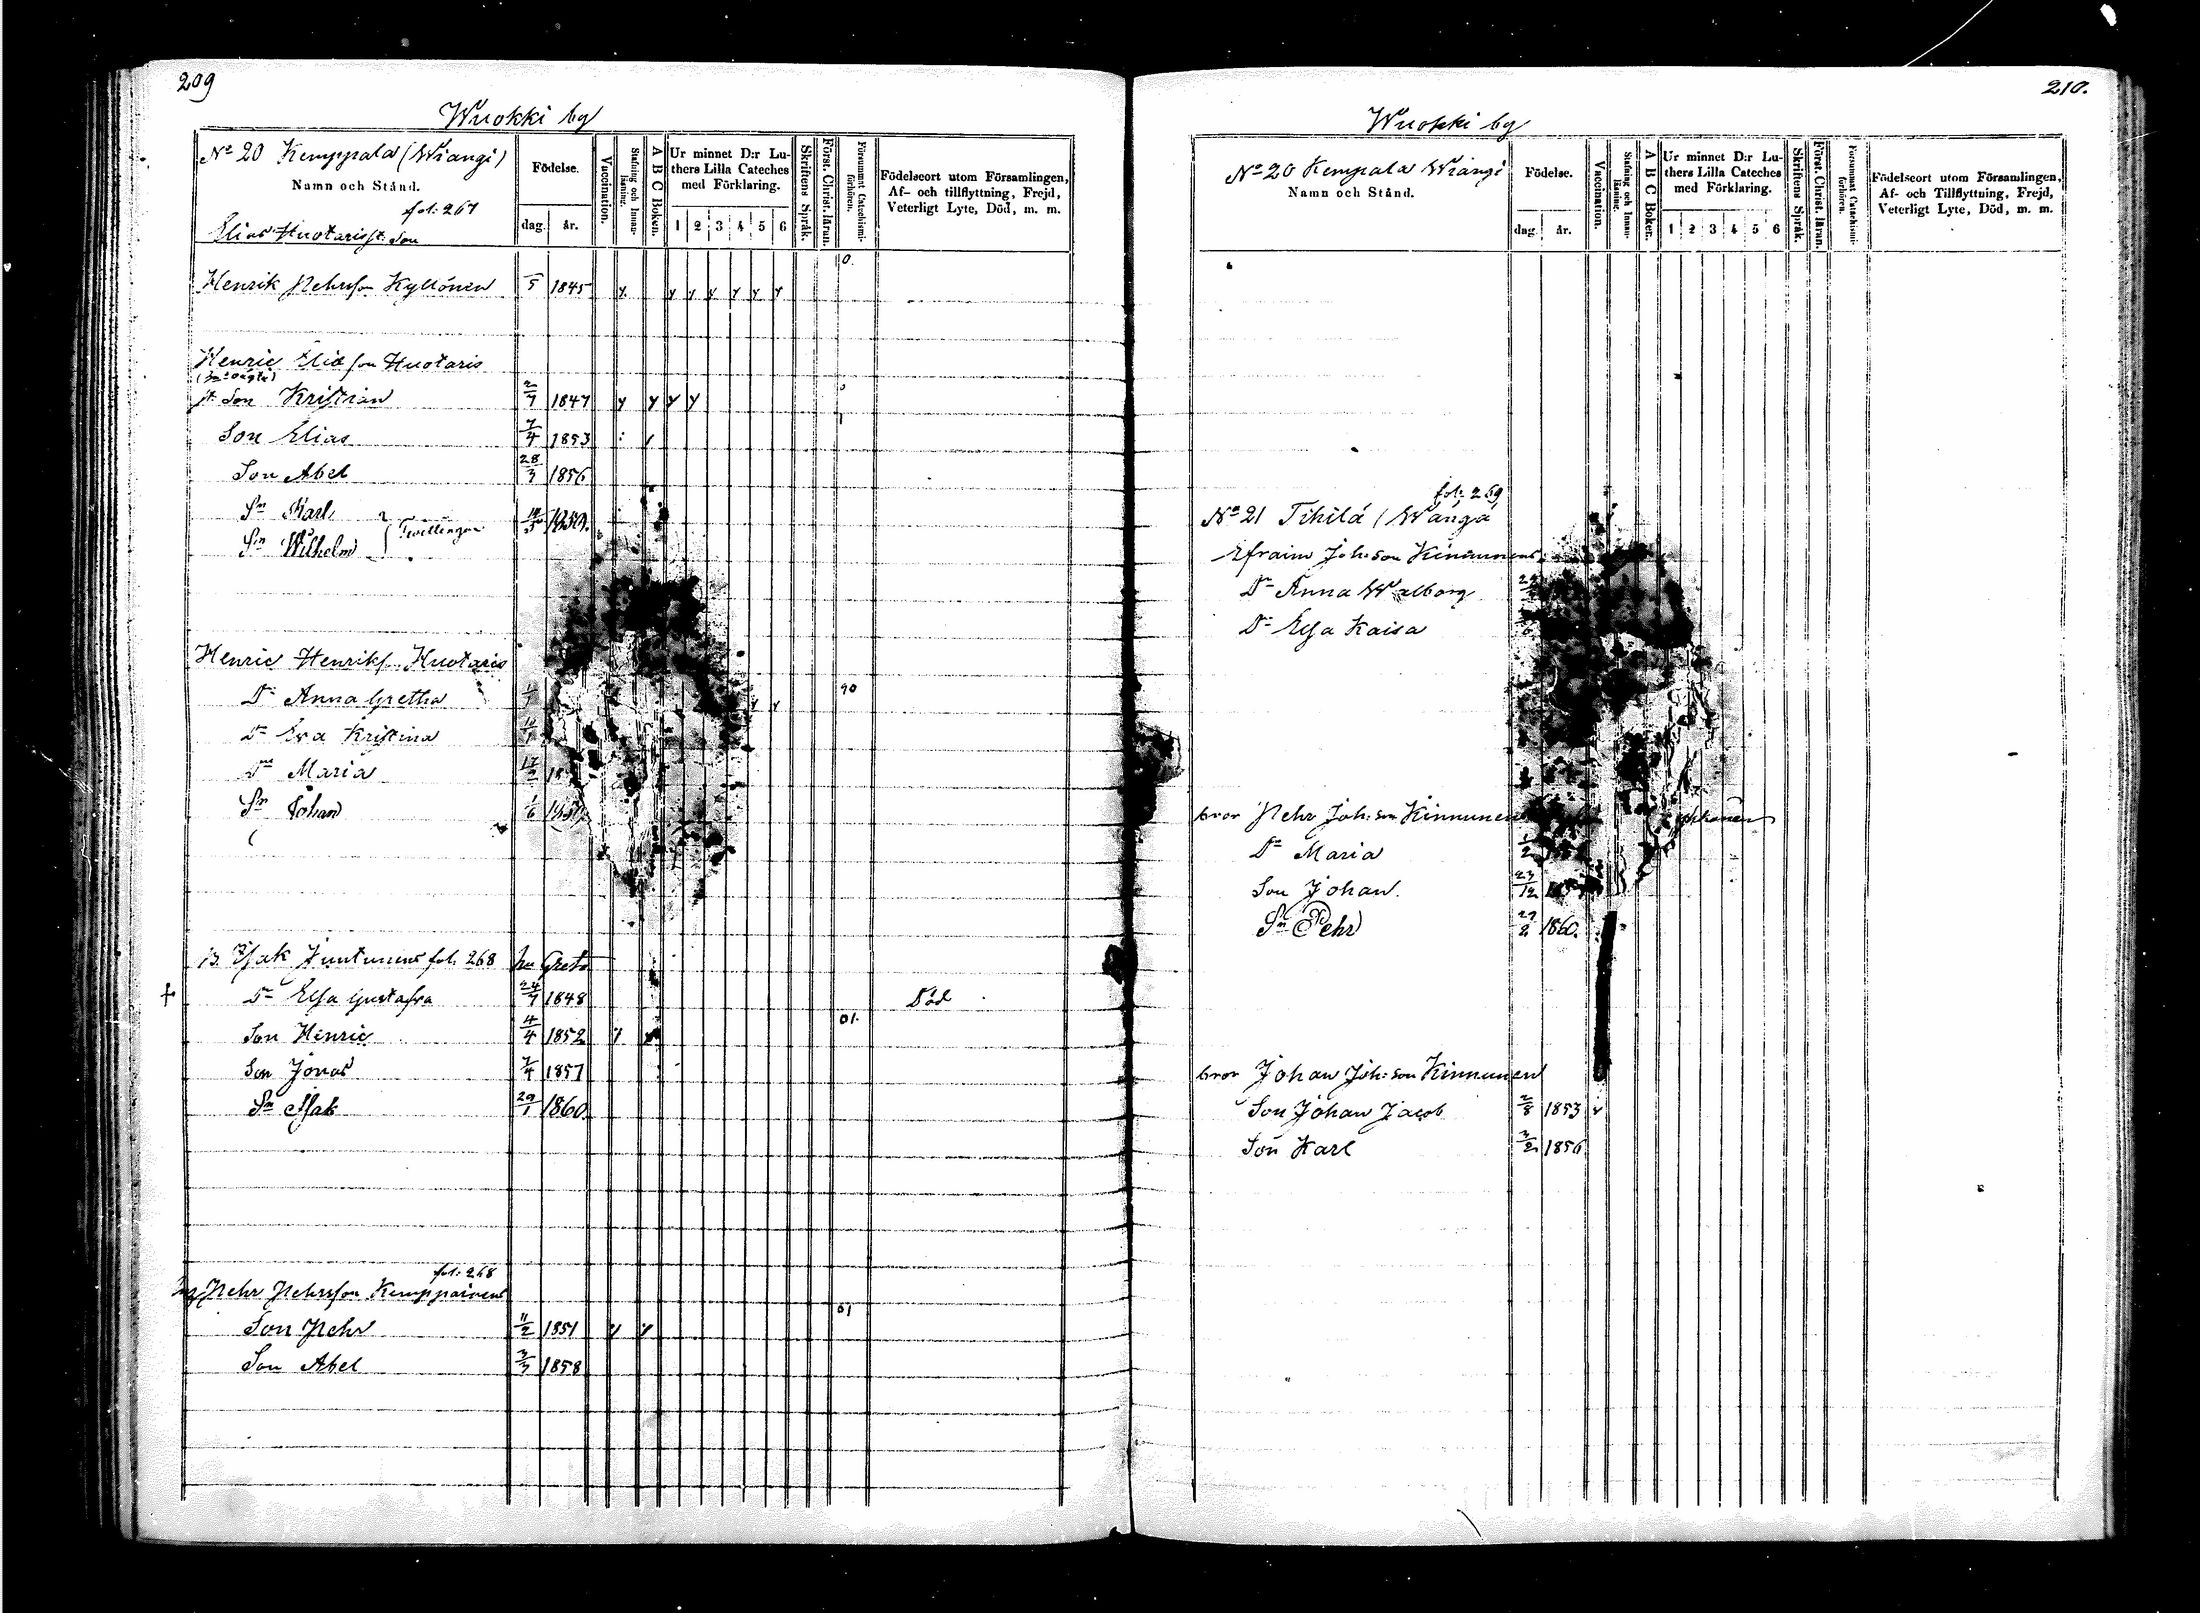 209
Wuokki by
No 20 Kemppala (Wiangi)
Namn och Stånd.
fol: 267
Elias Huotaris st. Son
Födelse.
dag. år.
Vaccination.
Stafning och Innanläsning.
A B C Boken.
Ur minnet D:r Luthers Lilla Cateches med Förklaring.
1 2 3 4 5 6
Skriftens Språk.
Först. Christ. läran.
Försummt Catechismiförhören.
Födelseort utom Församlingen, Af- och tillflyttning, Frejd, Veterligt Lyte, Död, m. m.
0.
Henrik Pehrsson Kyllönen 5 1845
Henric Eliasson Huotaris
st. Son Kristian 2/7 1847
Son Elias 7/4 1853
Son Abel 28/3 1856
Sn Karl
Sn Wilhelm Twillingar
Henric Henrikss. Huotaris
Dr Anna Gretha 90
Dr Eva Kristina
Dr Maria 17/2 18
Sn Johan 1/6
Isak Juntunens fol. 268 hu Greta
Dr Elsa Gustafva 24/7 1848 Död
Son Henric 4/4 1852 01.
Son Jonas 7/4 1857
Sn Isak 29/1 1860.
fol: 268
Pehr Pehrsson Kemppainens
Son Pehr 11/2 1851 01
Son Abel 3/3 1858
210.
Wuokki by
No 20 Kempala Wiangi
Namn och Stånd.
Födelse.
dag. år.
Vaccination.
Stafning och Innanläsning.
A B C Boken.
Ur minnet D:r Luthers Lilla Cateches med Förklaring.
1 2 3 4 5 6
Skriftens Språk.
Först. Christ. läran.
Försummat Catechismiförhören.
Födelseort utom Församlingen, Af- och Tillflyttning, Frejd, Veterligt Lyte, Död, m. m.
fol: 269
No 21 Tihilä (Wänga
Efraim Joh:son Kinnunens
Dr Anna Walborg
Dr Elsa Kaisa
bror Pehr Joh:son Kinnunen
Dr Maria
Son Johan. 23/12
Sn Pehr 27/2 1860.
bror Johan Joh:son Kinnunen
Son Johan Jacob 2/8 1853
Son Karl 3/2 1856